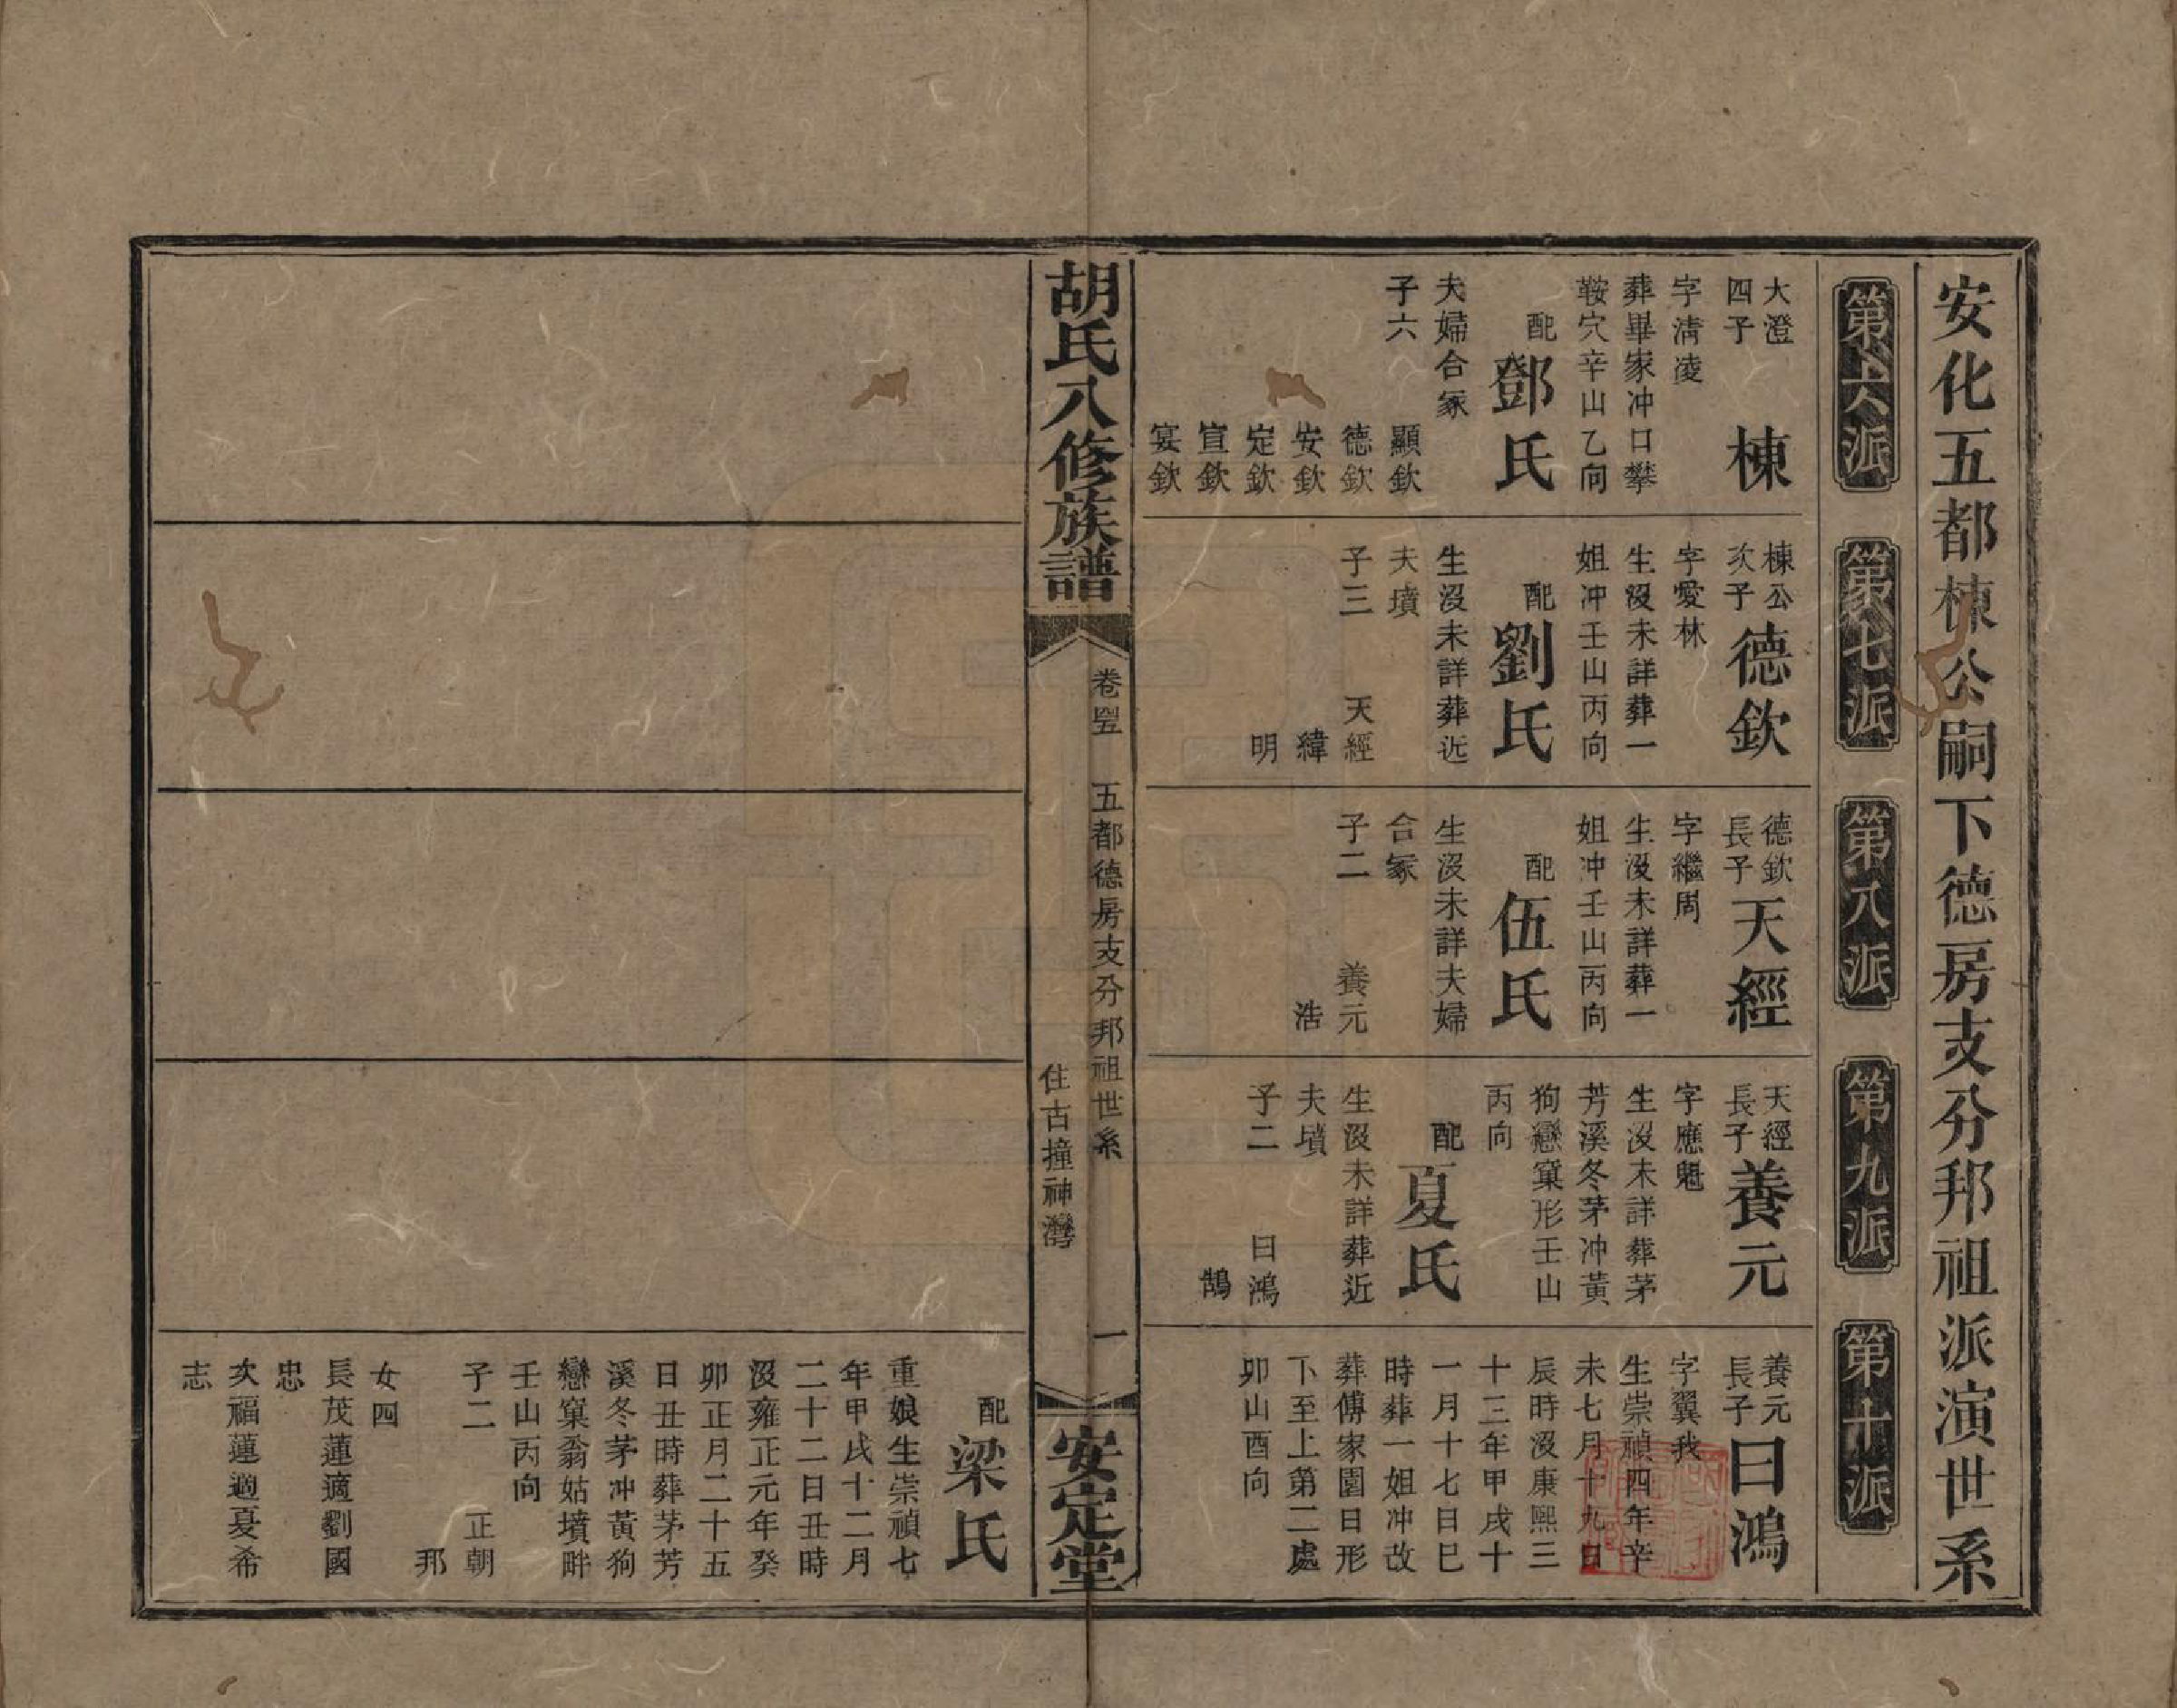 安化五都棟公嗣下德房支分邦祖派演世系
第六派
第七派
第八派
第九派
第十派
大澄
四子
棟
字清凌
葬畢家冲口攀
鞍穴辛山乙向
配
鄧氏
夫婦合冢
子六
顯欽
德欽
安欽
定欽
宣欽
宴欽
棟公
次子
德欽
字愛林
生沒未詳葬一
姐冲壬山丙向
配
劉氏
生沒未詳葬近
夫墳
子三
天經
緯
明
德欽
長子
天經
字繼周
生沒未詳葬一
姐冲壬山丙向
配
伍氏
生沒未詳夫婦
合冢
子二
養元
浩
天經
長子
養元
字應魁
生沒未詳葬茅
芳溪冬茅冲黃
狗戀窠形壬山
丙向
配
夏氏
生沒未詳葬近
夫墳
子二
曰鴻
鵠
養元
長子
曰鴻
字翼我
生崇禎四年辛
未七月十九日
辰時沒康熙三
十三年甲戌十
一月十七日巳
時葬一姐冲改
葬傅家園日形
下至上第二處
卯山酉向
胡氏八修族譜
卷四五
五都德房支分邦祖世系
住古撞神灣
一
安定堂
配
梁氏
重娘生崇禎七
年甲戌十二月
二十二日丑時
沒雍正元年癸
卯正月二十五
日丑時葬茅芳
溪冬茅冲黃狗
戀窠翁姑墳畔
壬山丙向
子二
正朝
邦
女四
長茂蓮適劉國
忠
次福蓮適夏希
志